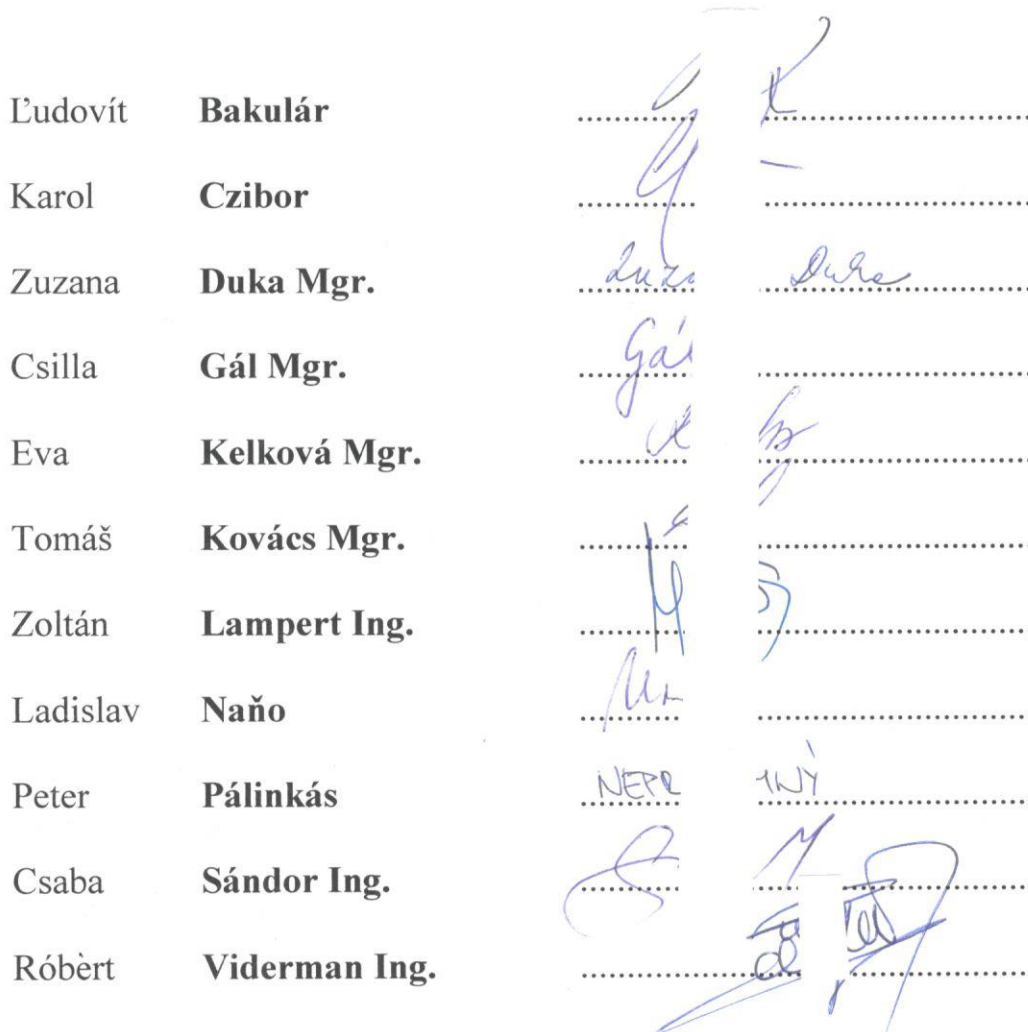 Ľudovít Bakulár
Karol Czibor
Zuzana Duka Mgr. Duka
Csilla Gál Mgr.
Eva Kelková Mgr.
Tomáš Kovács Mgr.
Zoltán Lampert Ing.
Ladislav Naňo
Peter Pálinkás
Csaba Sándor Ing.
Róbèrt Viderman Ing.